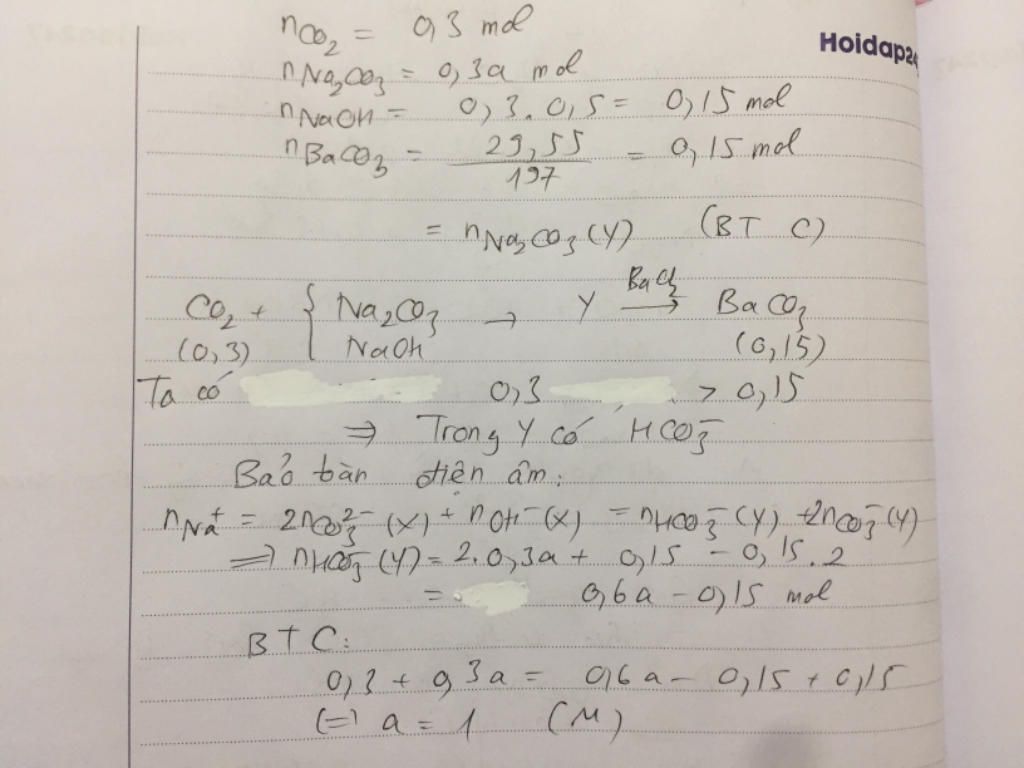 nCO₂ = 0,3 mol
Hoidap24
nNa₂CO₃ = 0,3a mol
nNaOH = 0,3.0,5 = 0,15 mol
nBaCO₃ = 29,55/197 = 0,15 mol
= nNa₂CO₃(Y) (BT C)
CO₂ + { Na₂CO₃ → Y —BaCl₂→ BaCO₃
(0,3) NaOH (0,15)
Ta có 0,3 > 0,15
⇒ Trong Y có HCO₃⁻
Bảo toàn điện âm:
nNa⁺ = 2nCO₃²⁻(X) + nOH⁻(X) = nHCO₃⁻(Y) + 2nCO₃⁻(Y)
⇒ nHCO₃⁻(Y) = 2.0,3a + 0,15 - 0,15.2
= 0,6a - 0,15 mol
BTC:
0,3 + 0,3a = 0,6a - 0,15 + 0,15
(=) a = 1 (M)